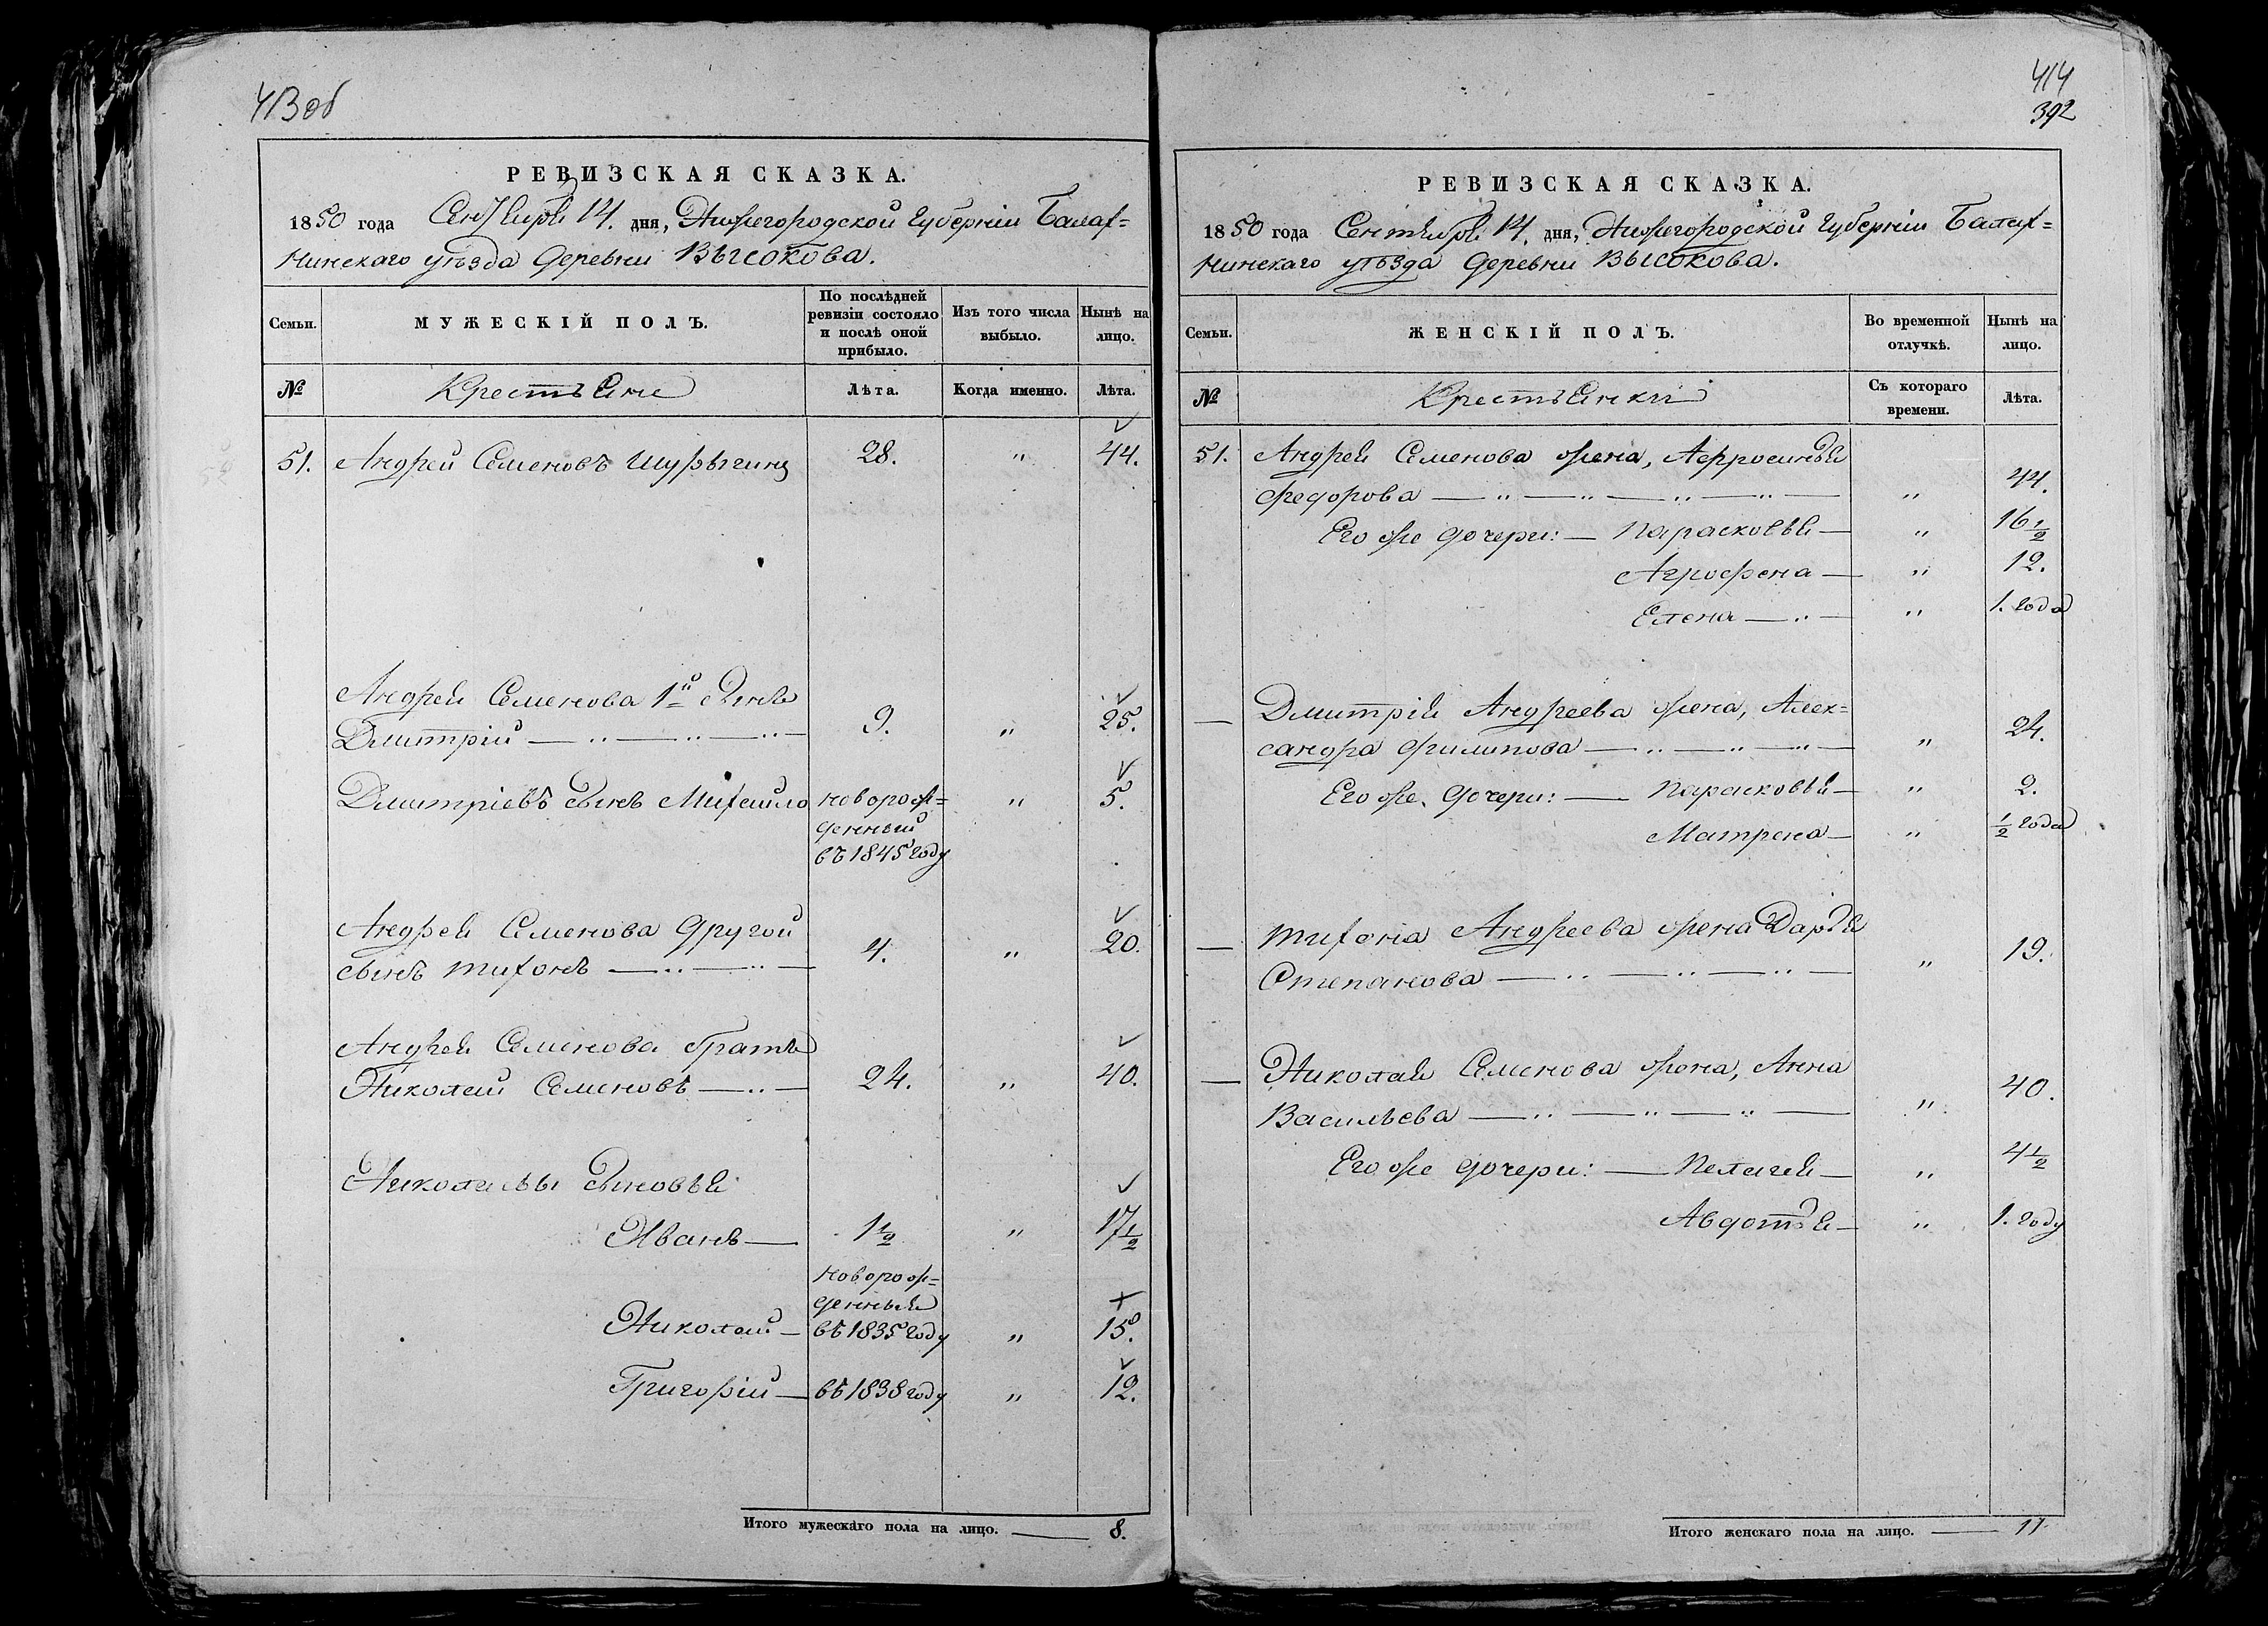 413 об
РЕВИЗСКАЯ СКАЗКА.
1850 года Сентября 14. дня, Нижегородской Губерніи Балах=
нинскаго уѣзда деревни Высокова.
Семьи.
МУЖЕСКІЙ ПОЛЪ.
По послѣдней
ревизіи состояло
и послѣ оной
прибыло.
Изъ того числа
выбыло.
Нынѣ на
лицо.
№
Крестьяне
Лѣта.
Когда именно.
Лѣта.
51. Андрей Семеновъ Шурыгинъ 28. " 44.
Андрея Семенова 1й сынъ
Дмитрій 9. " 25.
Дмитріевъ сынъ Михайло новорож= " 5.
денный
въ 1845 году
Андрея Семенова другой
сынъ Тихонъ 4. " 20.
Андрея Семенова братъ
Николай Семеновъ 24. " 40.
Николаевы сыновья
Иванъ 1½ " 17½
новорож=
денный
Николай въ 1835 году " 15.
Григорій въ 1838 году " 12.
Итого мужескаго пола на лицо. 8.
414
392
РЕВИЗСКАЯ СКАЗКА.
1850 года Сентября 14. дня, Нижегородской Губерніи Балах=
нинскаго уѣзда деревни Высокова.
Семьи.
ЖЕНСКІЙ ПОЛЪ.
Во временной
отлучкѣ.
Нынѣ на
лицо.
№
Крестьянки
Съ котораго
времени.
Лѣта.
51. Андрея Семенова жена, Афросинья
Федорова " 44.
Его же дочери: Парасковья " 16½
Агрофена " 12.
Елена " 1. года
Дмитрія Андреева жена, Алек=
сандра Филипова " 24.
Его же дочери: Парасковья " 2.
Матрена " ½ года
Тихона Андреева жена Дарья
Степанова " 19.
Николая Семенова жена, Анна
Васильева " 40.
Его же дочери: Пелагея " 4½
Авдотья " 1. году
Итого женскаго пола на лицо. 11.